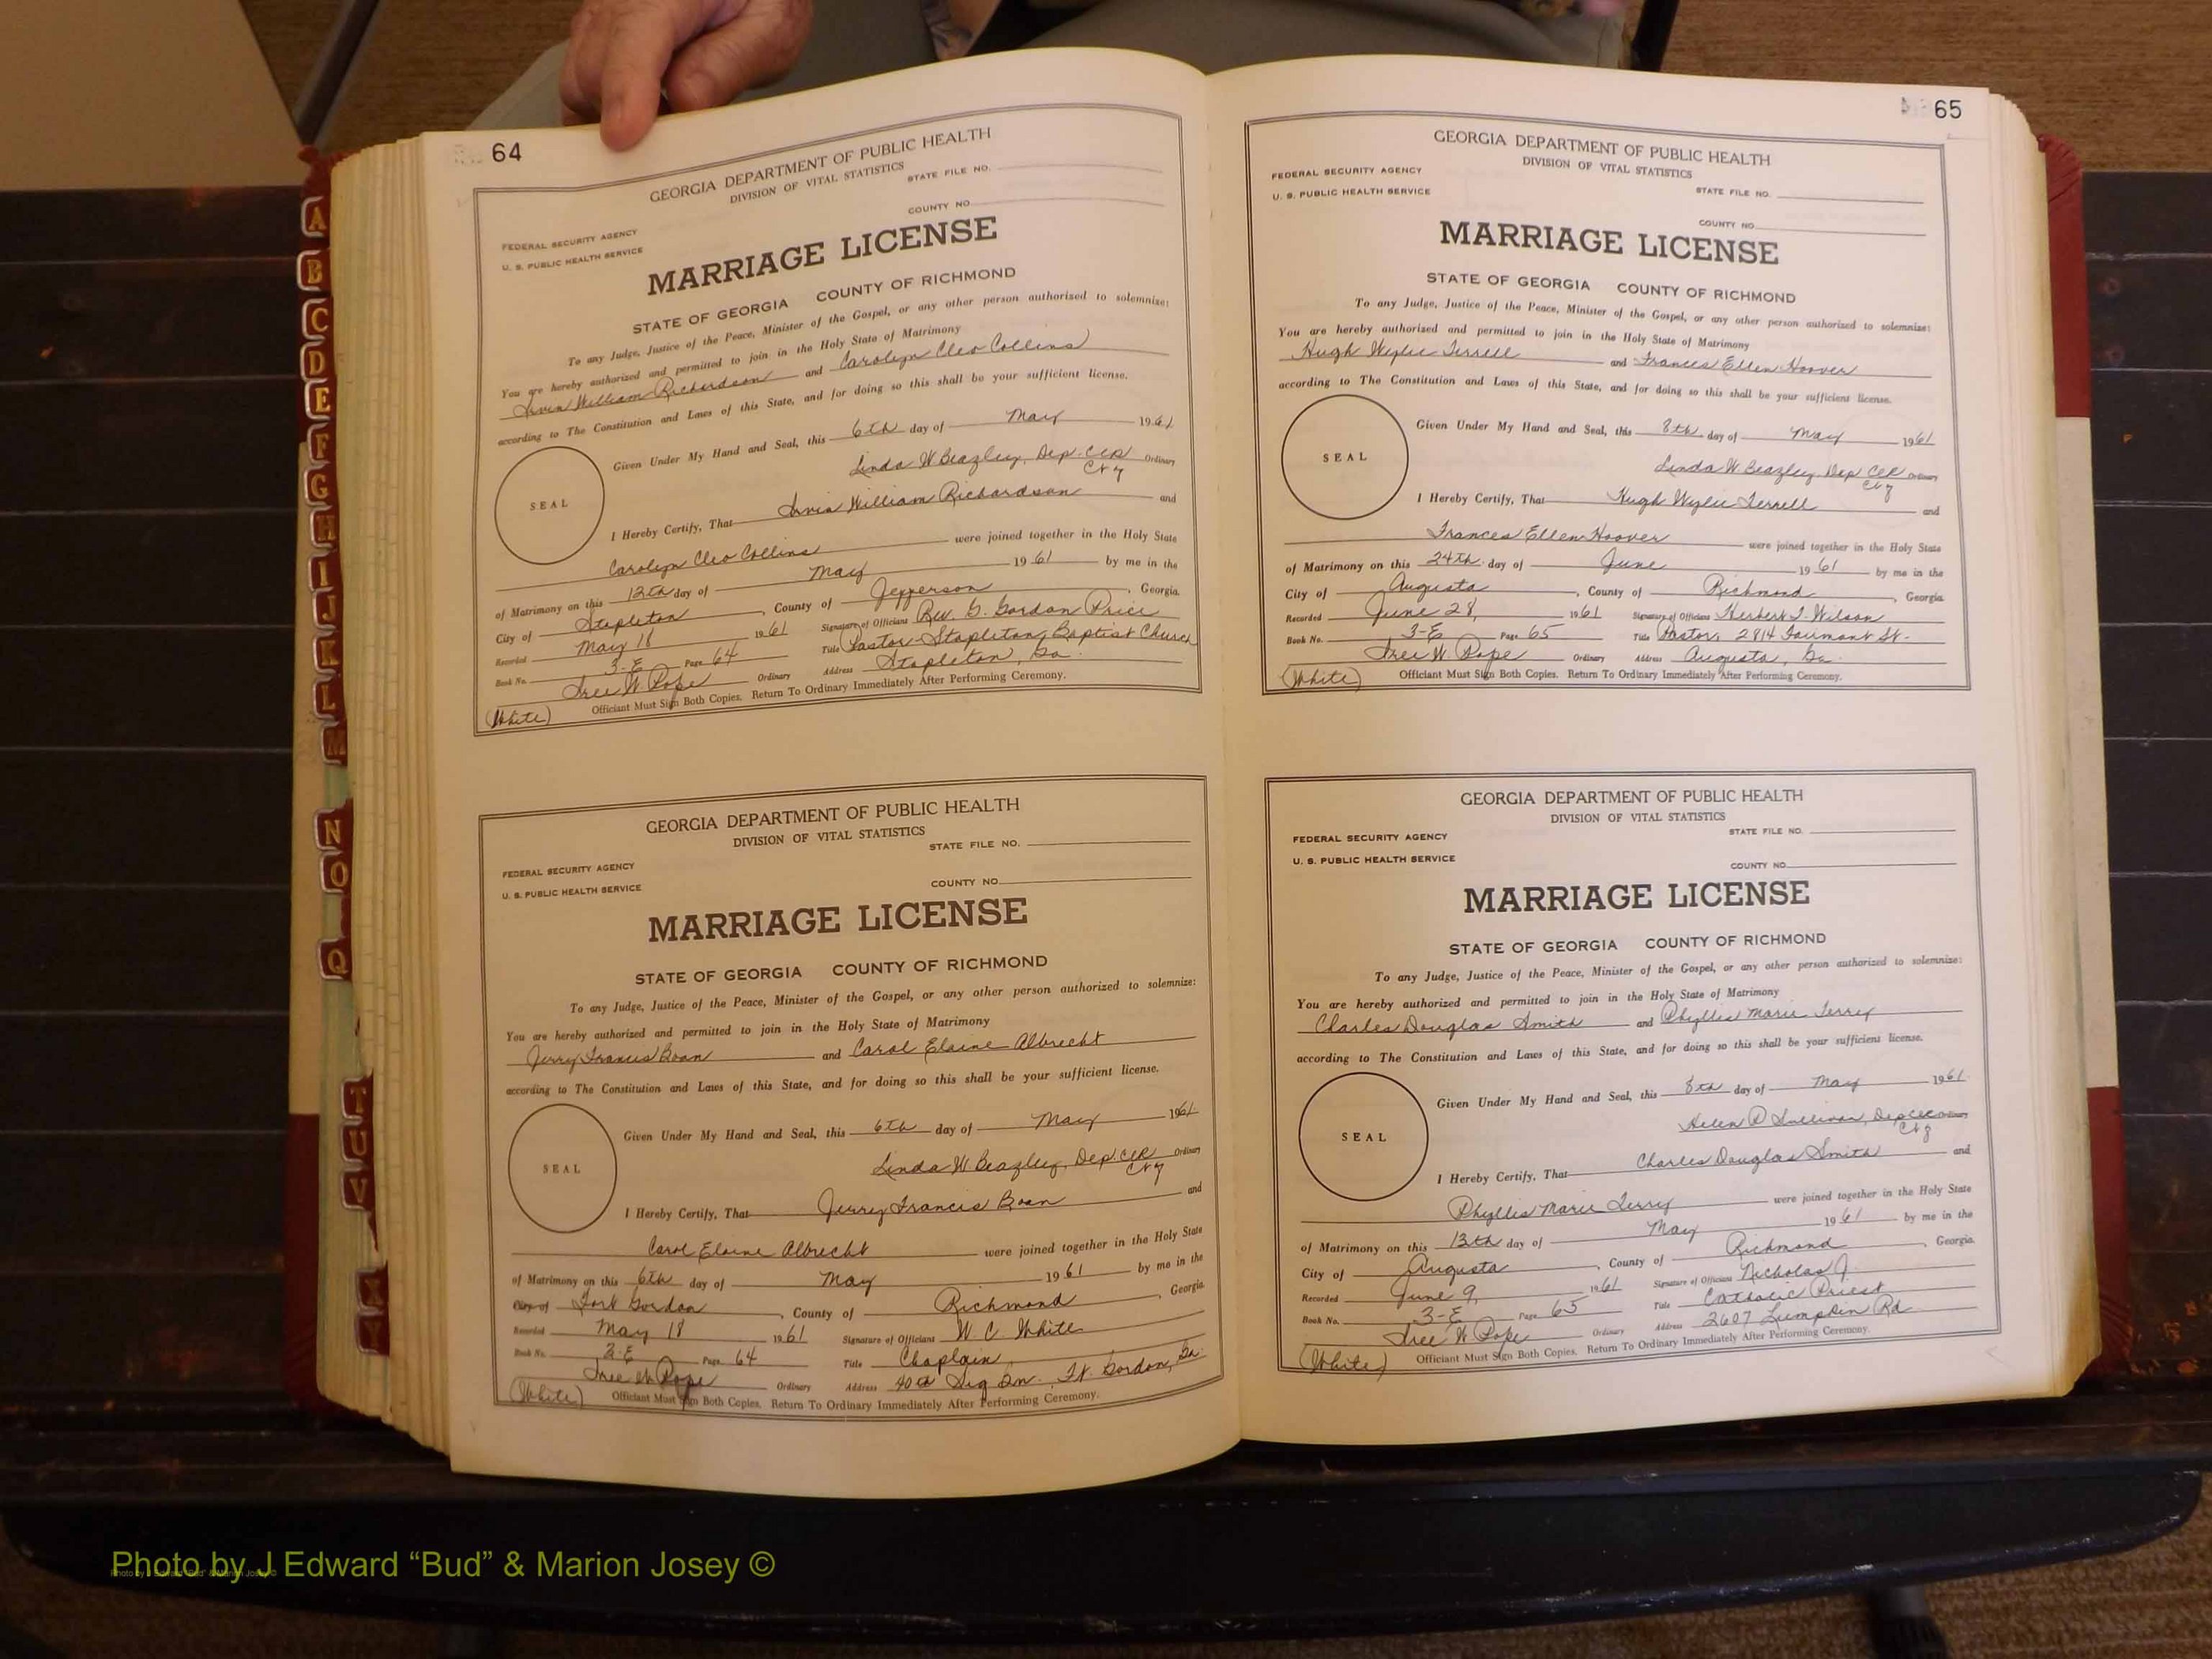 64
GEORGIA DEPARTMENT OF PUBLIC HEALTH
DIVISION OF VITAL STATISTICS
STATE FILE NO.
COUNTY NO
FEDERAL SECURITY AGENCY
U. S. PUBLIC HEALTH SERVICE
MARRIAGE LICENSE
STATE OF GEORGIA COUNTY OF RICHMOND
To any Judge, Justice of the Peace, Minister of the Gospel, or any other person authorized to solemnize:
You are hereby authorized and permitted to join in the Holy State of Matrimony
Irvin William Richardson and Carolyn Cleo Collins
according to The Constitution and Laws of this State, and for doing so this shall be your sufficient license.
Given Under My Hand and Seal, this 6th day of May 1961
Linda W Beazley, Dep. Clk Ordinary
SEAL
I Hereby Certify, That Irvin William Richardson and
Carolyn Cleo Collins were joined together in the Holy State
of Matrimony on this 12th day of May 1961 by me in the
City of Stapleton, County of Jefferson, Georgia.
Recorded May 18 1961 Signature of Officiant Rev. G. Gordon Price
Book No. 3-E Page 64 Title Pastor-Stapleton, Baptist Church
Ordinary Address Stapleton, Ga.
(White) Officiant Must Sign Both Copies. Return To Ordinary Immediately After Performing Ceremony.
GEORGIA DEPARTMENT OF PUBLIC HEALTH
DIVISION OF VITAL STATISTICS
STATE FILE NO.
FEDERAL SECURITY AGENCY
U. S. PUBLIC HEALTH SERVICE
COUNTY NO
MARRIAGE LICENSE
STATE OF GEORGIA COUNTY OF RICHMOND
To any Judge, Justice of the Peace, Minister of the Gospel, or any other person authorized to solemnize:
You are hereby authorized and permitted to join in the Holy State of Matrimony
Jerry Francis Boan and Carol Elaine Albrecht
according to The Constitution and Laws of this State, and for doing so this shall be your sufficient license.
Given Under My Hand and Seal, this 6th day of May 1961
Linda W Beazley, Dep. Clk Ordinary
SEAL
I Hereby Certify, That Jerry Francis Boan and
Carol Elaine Albrecht were joined together in the Holy State
of Matrimony on this 6th day of May 1961 by me in the
City of Fort Gordon, County of Richmond, Georgia
Recorded May 18 1961 Signature of Officiant W. C. White
Book No. 3-E Page 64 Title Chaplain
Ordinary Address 40th Sig Bn. Ft. Gordon, Ga.
(White) Officiant Must Sign Both Copies. Return To Ordinary Immediately After Performing Ceremony.
65
GEORGIA DEPARTMENT OF PUBLIC HEALTH
DIVISION OF VITAL STATISTICS
FEDERAL SECURITY AGENCY
U. S. PUBLIC HEALTH SERVICE
STATE FILE NO.
COUNTY NO
MARRIAGE LICENSE
STATE OF GEORGIA COUNTY OF RICHMOND
To any Judge, Justice of the Peace, Minister of the Gospel, or any other person authorized to solemnize:
You are hereby authorized and permitted to join in the Holy State of Matrimony
Hugh Wylie Terrell and Frances Ellen Hoover
according to The Constitution and Laws of this State, and for doing so this shall be your sufficient license.
Given Under My Hand and Seal, this 8th day of May 1961
Linda W Beazley Dep Clk Ordinary
SEAL
I Hereby Certify, That Hugh Wylie Terrell and
Frances Ellen Hoover were joined together in the Holy State
of Matrimony on this 24th day of June 1961 by me in the
City of Augusta, County of Richmond, Georgia
Recorded June 28, 1961 Signature of Officiant Herbert J. Wilson
Book No. 3-E Page 65 Title Pastor, 2814 St.
Ordinary Address Augusta, Ga.
(White) Officiant Must Sign Both Copies. Return To Ordinary Immediately After Performing Ceremony.
GEORGIA DEPARTMENT OF PUBLIC HEALTH
DIVISION OF VITAL STATISTICS
STATE FILE NO.
FEDERAL SECURITY AGENCY
U. S. PUBLIC HEALTH SERVICE
COUNTY NO
MARRIAGE LICENSE
STATE OF GEORGIA COUNTY OF RICHMOND
To any Judge, Justice of the Peace, Minister of the Gospel, or any other person authorized to solemnize:
You are hereby authorized and permitted to join in the Holy State of Matrimony
Charles Douglas Smith and Phyllis Marie Terry
according to The Constitution and Laws of this State, and for doing so this shall be your sufficient license.
Given Under My Hand and Seal, this 8th day of May 1961
Helen P Sullivan, Dep Clk Ordinary
SEAL
I Hereby Certify, That Charles Douglas Smith and
Phyllis Marie Terry were joined together in the Holy State
of Matrimony on this 13th day of May 1961 by me in the
City of Augusta, County of Richmond, Georgia.
Recorded June 9, 1961 Signature of Officiant Nicholas J.
Book No. 3-E Page 65 Title Catholic Priest
Ordinary Address 2607 Lumpkin Rd
(White) Officiant Must Sign Both Copies. Return To Ordinary Immediately After Performing Ceremony.
A
B
C
D
E
F
G
H
I
J
K
L
M
N
O
Q
T
U
V
X
Y
Photo by J Edward “Bud” & Marion Josey ©
Photo by J Edward "Bud" & Marion Josey ©